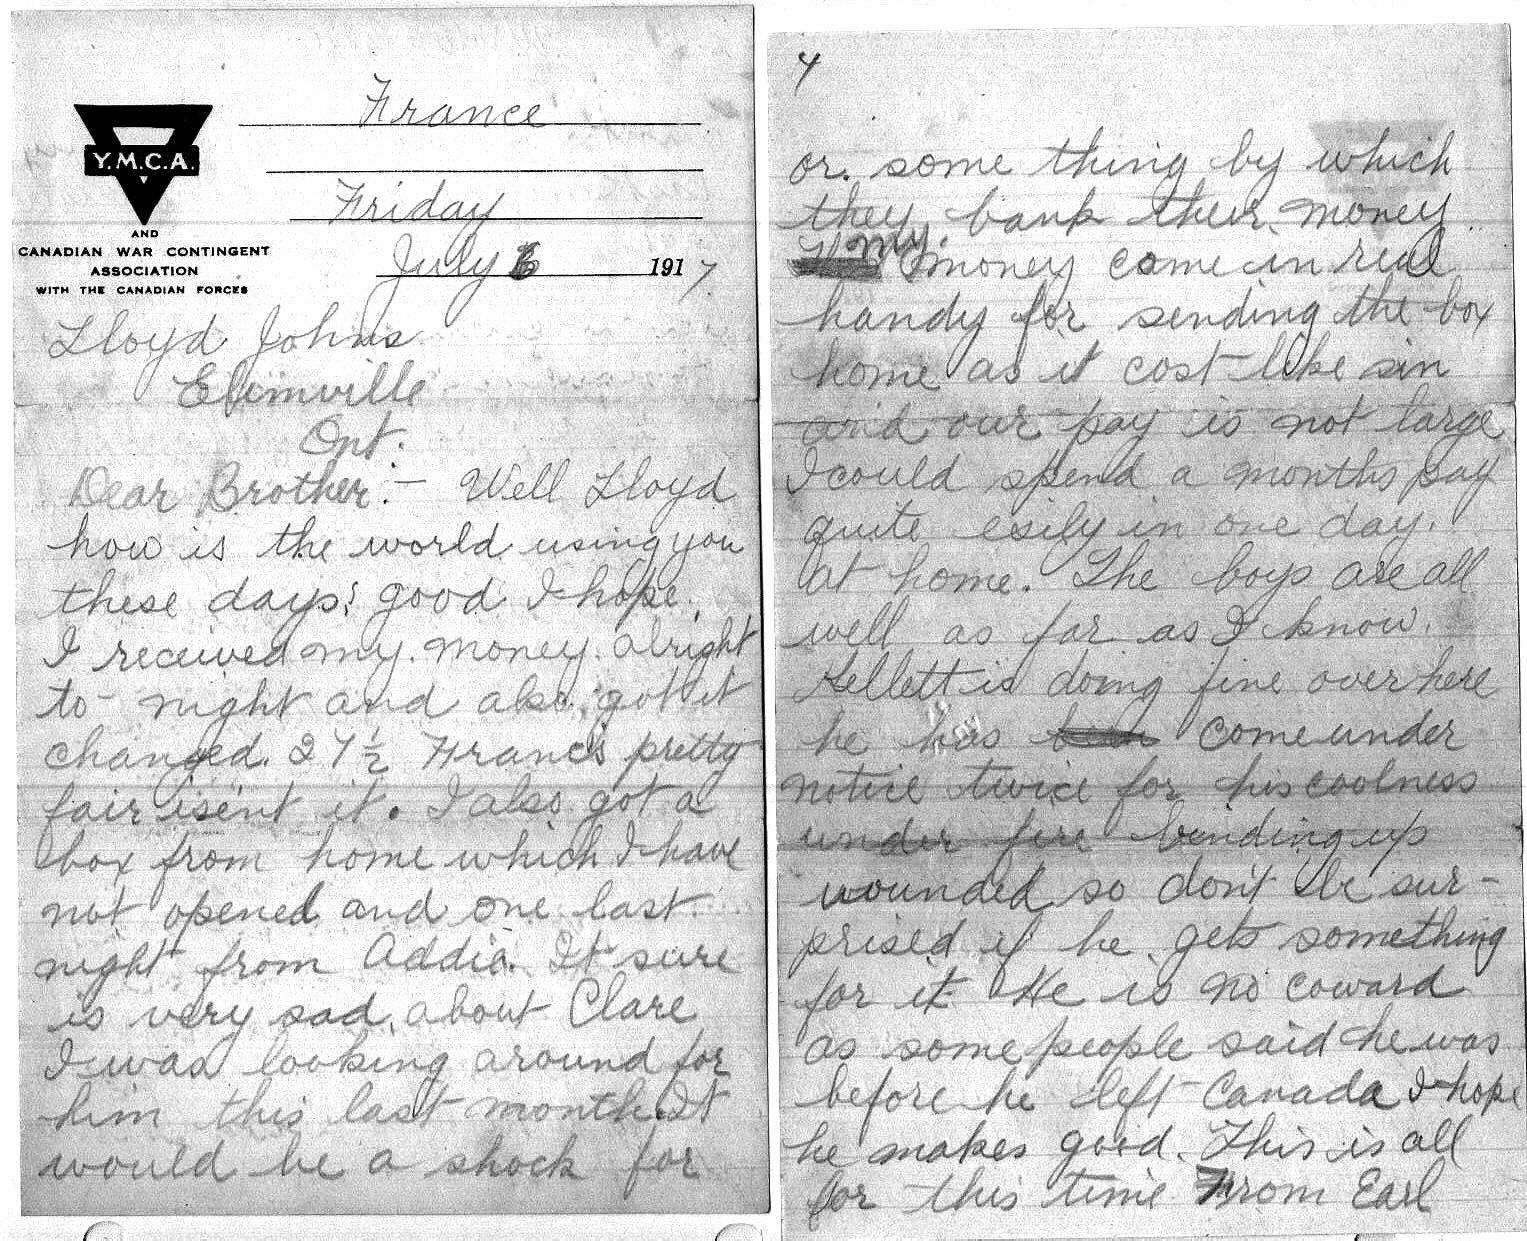 France
Y.M.C.A.
Friday
AND
CANADIAN WAR CONTINGENT
ASSOCIATION
WITH THE CANADIAN FORCES
July 6 1917.
Lloyd Johns
Elimville
Ont.
Dear Brother:- Well Lloyd
how is the world using you
these days; good I hope.
I received my money alright
to-night and also got it
changed. 27½ Francs pretty
fair isent it. I also got a
box from home which I have
not opened and one last
night from Addia. It sure
is very sad about Clare
I was looking around for
him this last month. It
would be a shock for
4
or some thing by which
they bank their money
My money came in real
handy for sending the box
home as it cost like sin
and our pay is not large
I could spend a months pay
quite esily in one day.
at home. The boys are all
well as far as I know.
Kellett is doing fine over here
he has come under
notice twice for his coolness
under fire binding up
wounded so don't be sur-
prised if he gets something
for it He is no coward
as some people said he was
before he left Canada I hope
he makes good. This is all
for this time From Earl